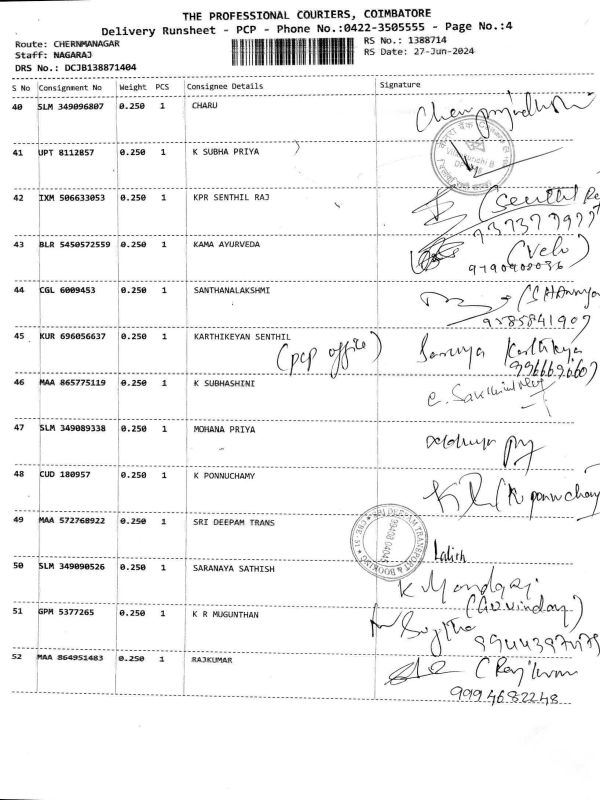 THE PROFESSIONAL COURIERS, COIMBATORE
Delivery Runsheet - PCP - Phone No.:0422-3505555 - Page No.:4
Route: CHERNMANAGAR RS No.: 1388714
Staff: NAGARAJ RS Date: 27-Jun-2024
DRS No.: DCJB138871404
S No Consignment No Weight PCS Consignee Details Signature
40 SLM 349096807 0.250 1 CHARU
41 UPT 8112857 0.250 1 K SUBHA PRIYA
42 IXM 506633053 0.250 1 KPR SENTHIL RAJ
(Senthil
43 BLR 5450572559 0.250 1 KAMA AYURVEDA (Velu)
44 CGL 6009453 0.250 1 SANTHANALAKSHMI
45 KUR 696056637 0.250 1 KARTHIKEYAN SENTHIL
(pcp office)
46 MAA 865775119 0.250 1 K SUBHASHINI
47 SLM 349089338 0.250 1 MOHANA PRIYA
48 CUD 180957 0.250 1 K PONNUCHAMY
49 MAA 572768922 0.250 1 SRI DEEPAM TRANS
SRI DEEPAM TRANSPORT & BOOKING
Lalith
50 SLM 349090526 0.250 1 SARANAYA SATHISH
(Govindaraj)
51 GPM 5377265 0.250 1 K R MUGUNTHAN Sujitha
52 MAA 864951483 0.250 1 RAJKUMAR
9994682248